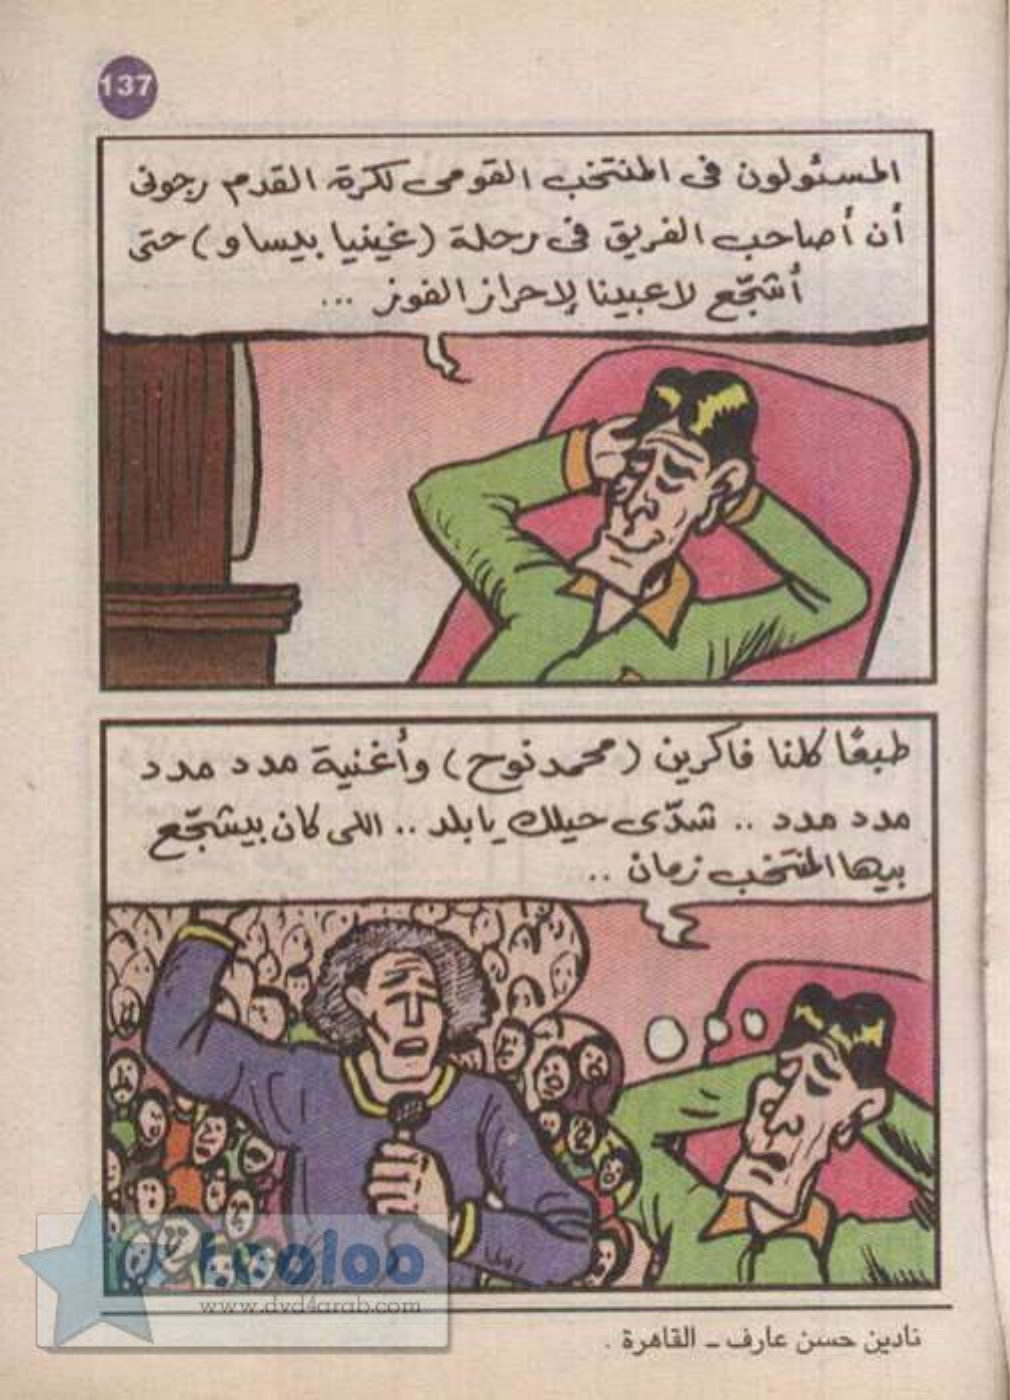 137
المسئولون فى المنتخب القومى لكرة القدم رجونى
أن أصاحب الفريق فى رحلة (غينيا بيساو) حتى
أشجّع لاعبينا لإحراز الفوز ...
طبعًا كلنا فاكرين (محمد نوح) وأغنية مدد مدد
مدد مدد .. شدّى حيلك يا بلد .. اللى كان بيشجّع
بيها المنتخب زمان ..
looloo
www.dvd4arab.com
نادين حسن عارف ــ القاهرة .